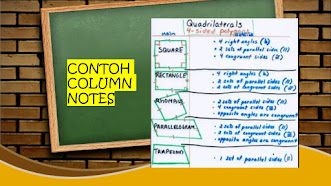 CONTOH
COLUMN
NOTES
Quadrilaterals
4-sided polygons
MAIN
SQUARE
• 4 right angles
• 2 sets of parallel sides
• 4 congruent sides
RECTANGLE
• 4 right angles
• 2 sets of parallel sides
• 2 sets of congruent sides
RHOMBUS
• 2 sets of parallel sides
• 4 congruent sides
• opposite angles are congruent
PARALLELOGRAM
• 2 sets of parallel sides
• 2 sets of congruent sides
• opposite angles are congruent
TRAPEZOID
• 1 set of parallel sides